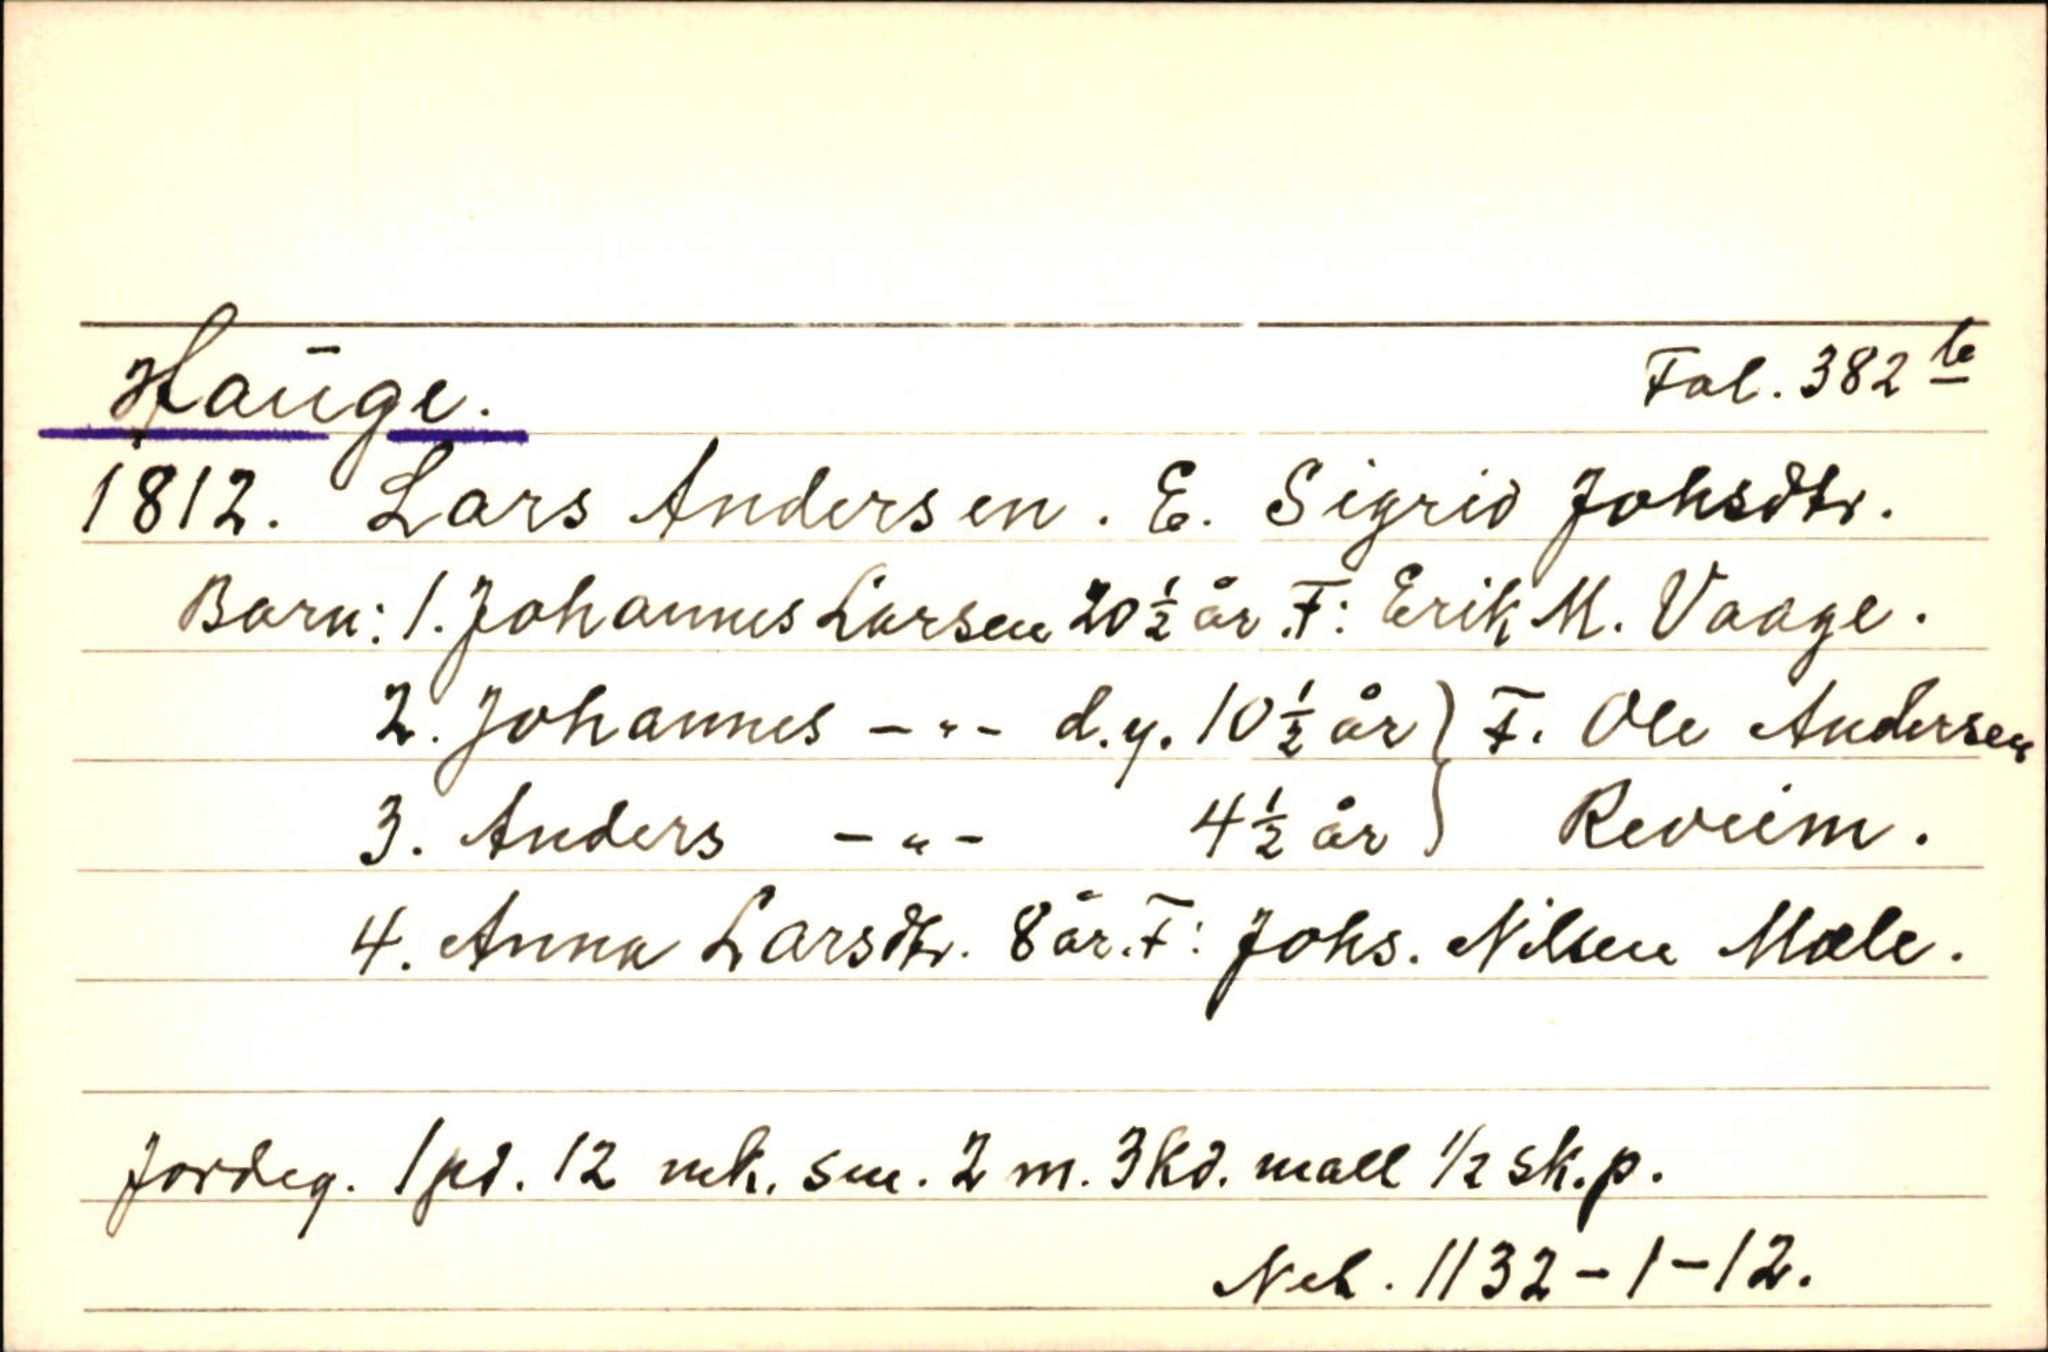 Hauge. Fol. 382 b
1812. Lars Andersen. E. Sigrid Johsdtr.
Barn: 1. Johannes Larsen 20 ½ år. F: Erik M. Vaage.
2. Johannes -"- d.y. 10 ½ år } F. Ole Andersen
3. Anders -"- 4 ½ år } Reveim.
4. Anna Larsdtr. 8 år. F: Johs. Nilsen Mæle.
Jordeg. 1 pd. 12 mk. sm. 2 m. 3 kd. mall ½ sk.p.
Net. 1132-1-12.